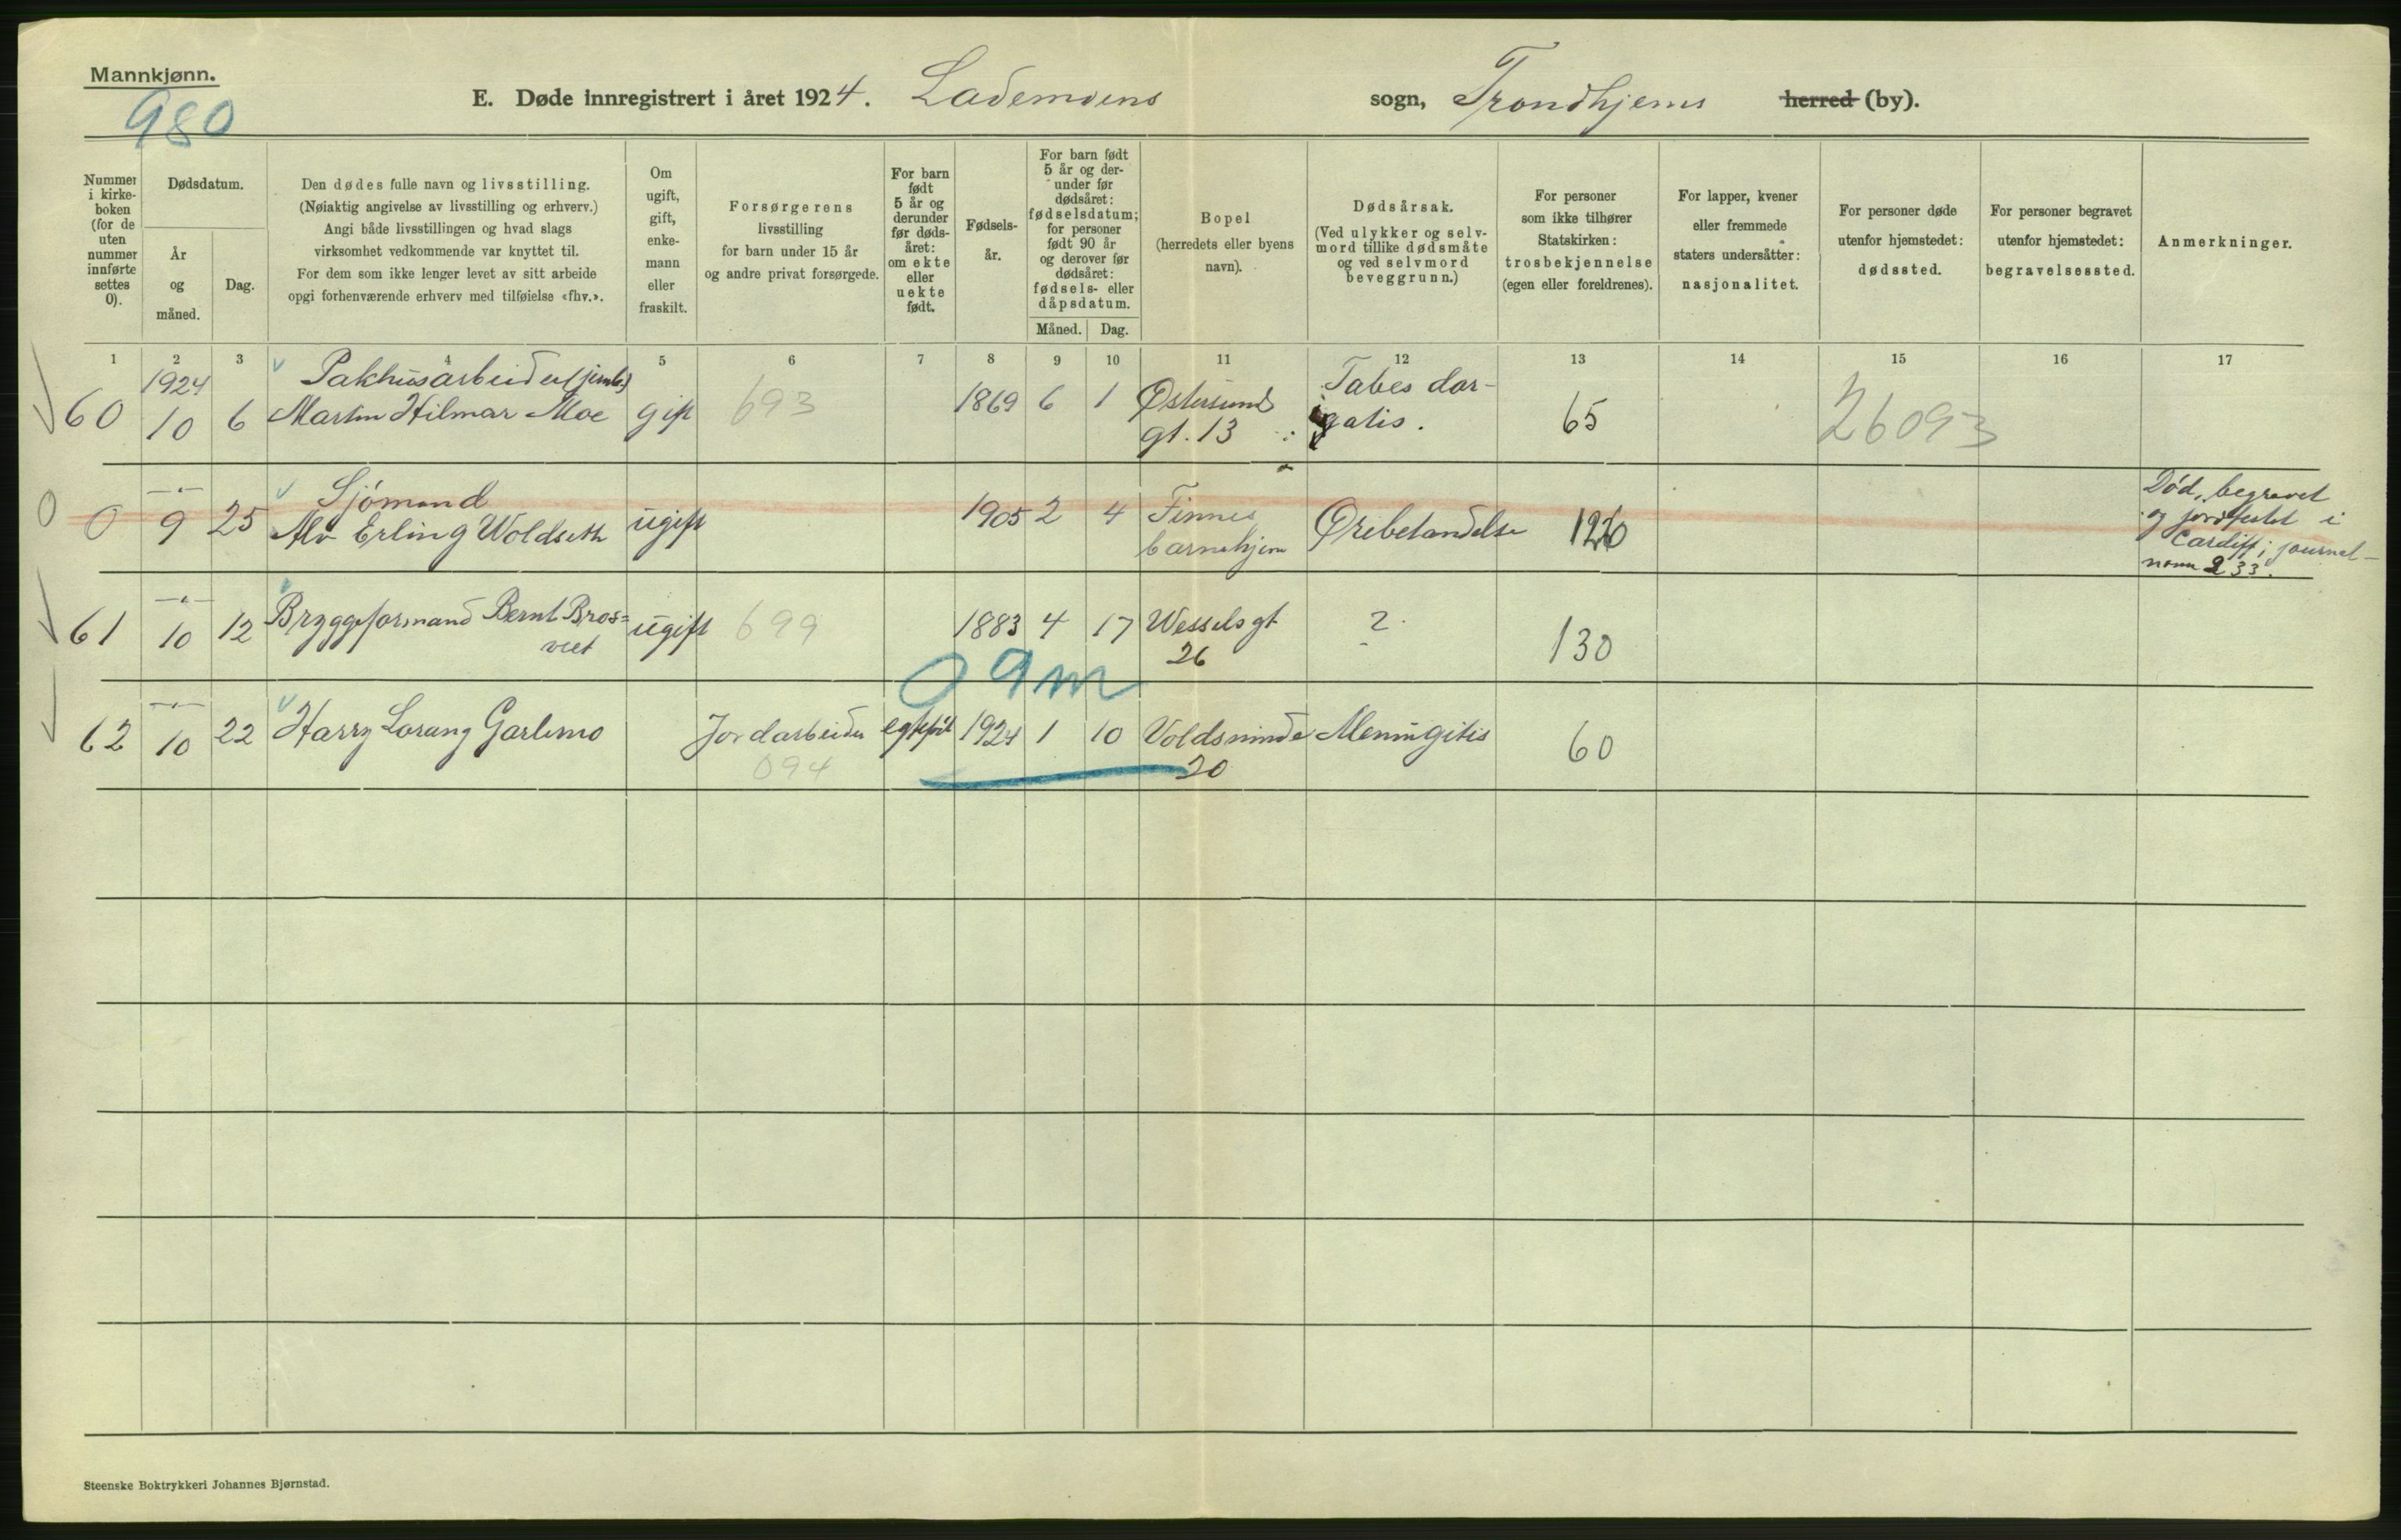 Mannkjønn.
980
E. Døde innregistrert i året 1924. Lademoens sogn, Trondhjems herred (by).
Nummer i kirke- boken (for de uten nummer innførte settes 0).
Dødsdatum.
År og måned.
Dag.
Den dødes fulle navn og livsstilling.
(Nøiaktig angivelse av livsstilling og erhverv.)
Angi både livsstillingen og hvad slags
virksomhet vedkommende var knyttet til.
For dem som ikke lenger levet av sitt arbeide
opgi forhenværende erhverv med tilføielse «fhv.».
Om ugift, gift, enke- mann eller fraskilt.
Forsørgerens
livsstilling
for barn under 15 år
og andre privat forsørgede.
For barn født 5 år og derunder før døds- året: om ekte eller uekte født.
Fødsels- år.
For barn født 5 år og der- under før dødsåret: fødselsdatum; for personer født 90 år og derover før dødsåret: fødsels- eller dåpsdatum.
Måned. Dag.
Bopel
(herredets eller byens
navn).
Dødsårsak.
(Ved ulykker og selv-
mord tillike dødsmåte
og ved selvmord
beveggrunn.)
For personer
som ikke tilhører
Statskirken:
trosbekjennelse
(egen eller foreldrenes).
For lapper, kvener
eller fremmede
staters undersåtter:
nasjonalitet.
For personer døde
utenfor hjemstedet:
dødssted.
For personer begravet
utenfor hjemstedet:
begravelsessted.
Anmerkninger.
1 2 3 4 5 6 7 8 9 10 11 12 13 14 15 16 17
1924 Pakhusarbeider (jernb.) Tabes dor-
60 10 6 Martin Hilmar Moe gift 693 1869 6 1 Østersunds gt. 13 satis. 65 26093
Sjómand
0 0 9 25 Alv Erling Woldseth ugift 1905 2 4 Finnes barnehjem Ørebetændelse
Død, begravet
og jordfestet i
Cardiff; journal-
num 233.
61 10 12 Bryggeformand Bernt Bros=
vet ugift 699 1883 4 17 Wesselsgt 26 ? 130
09m
62 10 22 Harry Lorang Garlimo Jordarbeider egtefød 1924 1 10 Voldsminde 20 Meningitis 60
094
Steenske Boktrykkeri Johannes Bjørnstad.